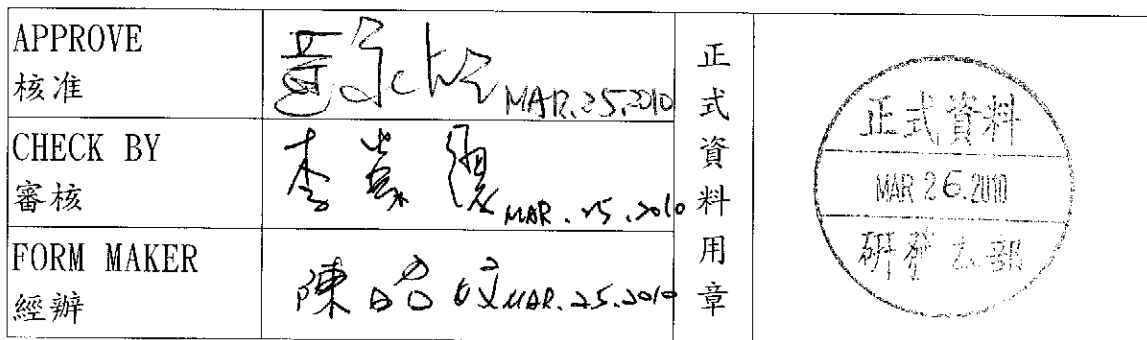 APPROVE
核准
MAR.25.2010
CHECK BY
審核
李
MAR.25.2010
FORM MAKER
經辦
陳
MAR.25.2010
正式資料用章
正式資料
MAR 26.2010
研發
部